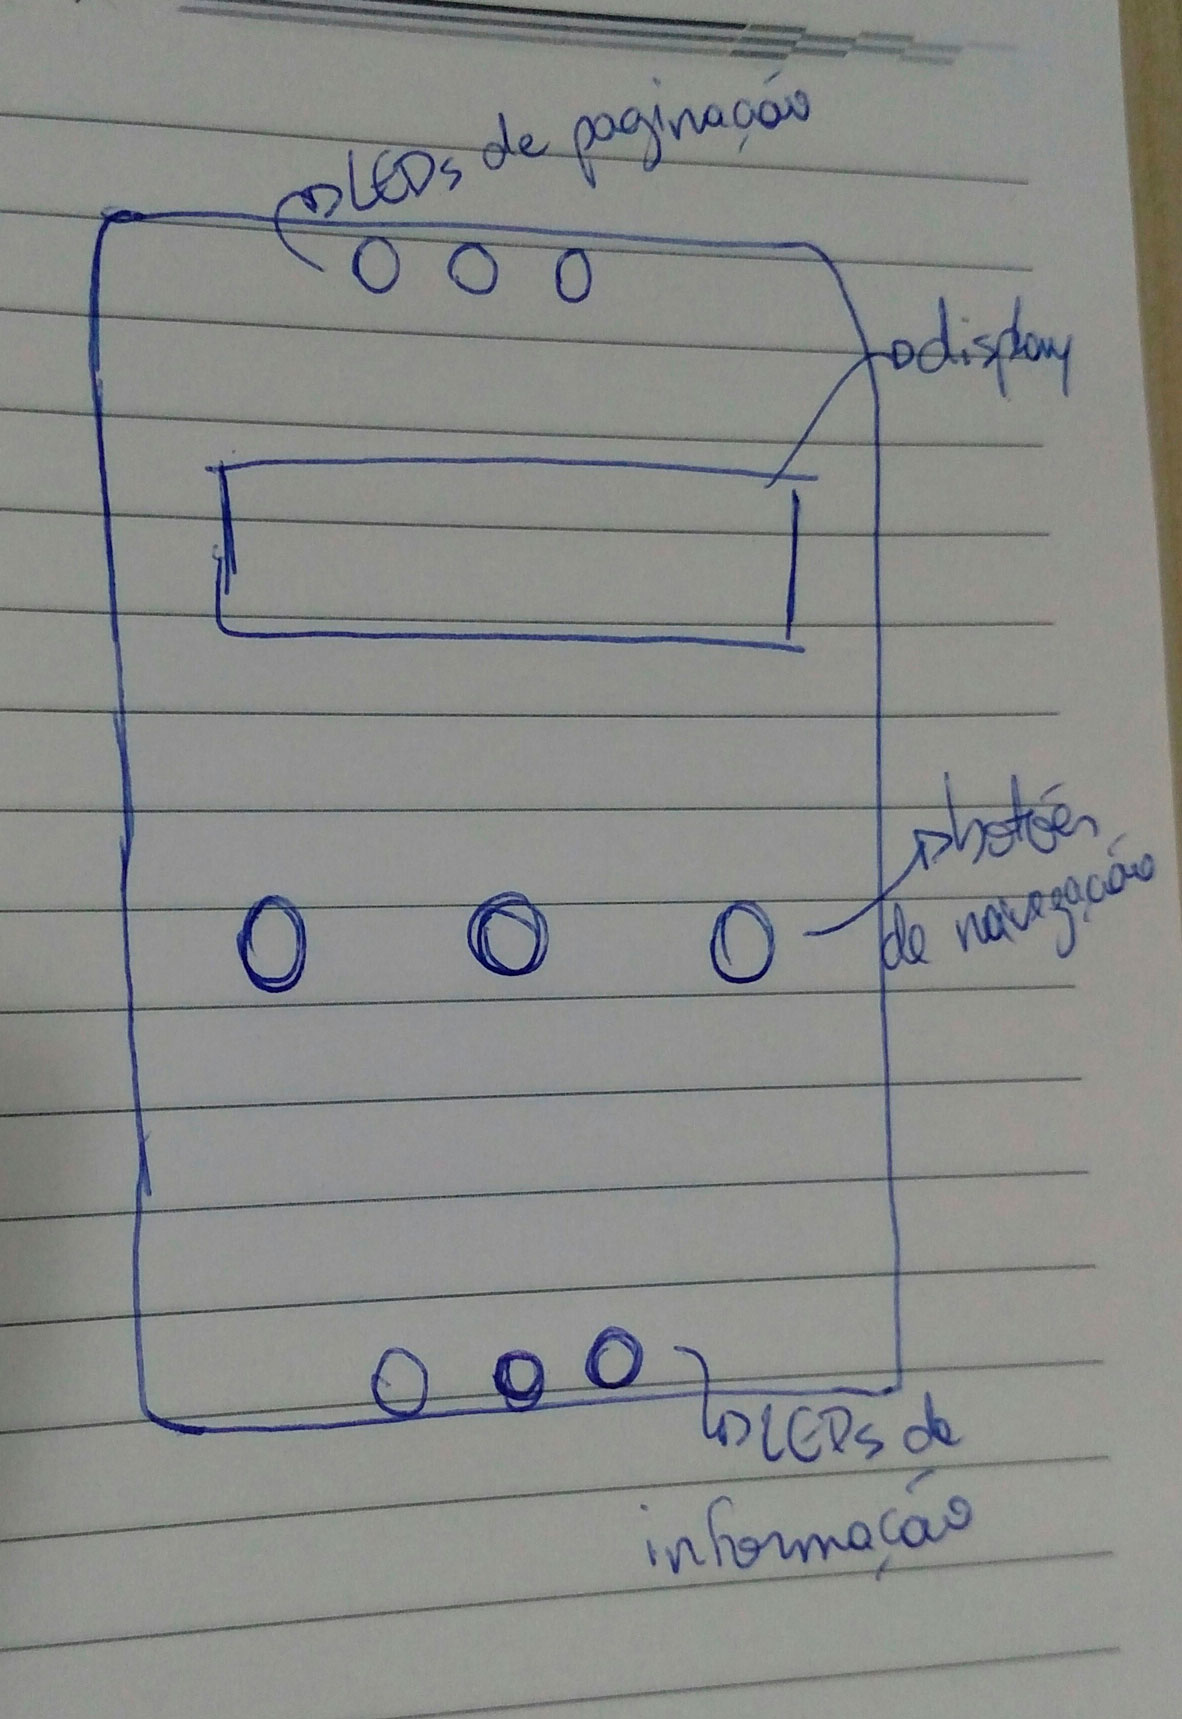 LEDs de paginação
display
botões
de navegação
LEDs de
informação